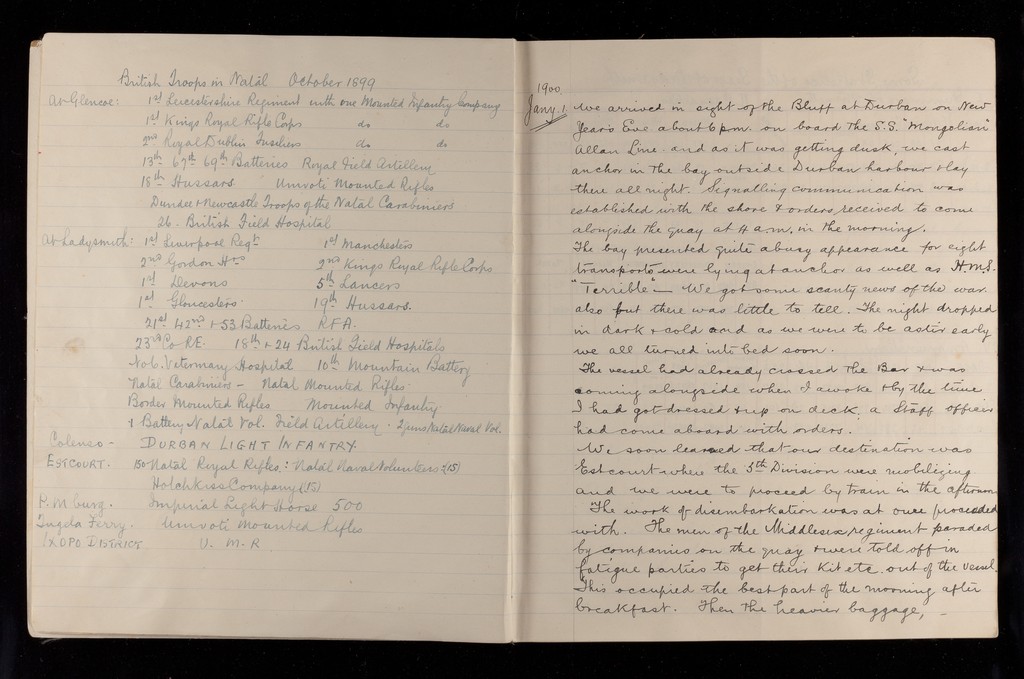 British Troops in Natal October 1899
At Glencoe: 1st Leicestershire Regiment with one Mounted Infantry Company
1st Kings Royal Rifle Corps do do
2nd Royal Dublin Fusiliers do do
13th 67th 69th Batteries Royal Field Artillery
18th Hussars. Umvoti Mounted Rifles
Dundee & Newcastle Troops of the Natal Carabiniers
26. British Field Hospital
At Ladysmith: 1st Liverpool Regt 1st Manchesters
2nd Gordon Hrs 2nd Kings Royal Rifle Corps
1st Devons 5th Lancers
1st Gloucesters. 19th Hussars.
21st 42nd & 53 Batteries R.F.A.
23rd Co R.E. 18th & 24 British Field Hospitals
No 6. Veterinary Hospital 10th Mountain Battery
Natal Carabiniers - Natal Mounted Rifles
Border Mounted Rifles Mounted Infantry
1 Battery Natal Vol. Field Artillery. 2 guns Natal Naval Vol.
Colenso - DURBAN LIGHT INFANTRY.
ESTCOURT. 150 Natal Royal Rifles: Natal Naval Volunteers (15)
Hotchkiss Company (15)
P.M.burg. Imperial Light Horse 500
Tugela Ferry. Umvoti Mounted Rifles
IXOPO DISTRICT U. M. R.
1900.
Jany. 1. We arrived in sight of the Bluff at Durban on New
Year's Eve about 6 p.m. on board the S.S. "Mongolian"
Allan Line. and as it was getting dusk, we cast
anchor in the bay outside Durban harbour & lay
there all night. Signalling communication was
established with the shore & orders received to come
alongside the quay at 4 a.m. in the morning.
The bay presented quite a busy appearance for eight
transports were lying at anchor as well as H.M.S.
"Terrible" — We got some scanty news of the war
also but there was little to tell. The night dropped
in dark & cold and as we were to be astir early
we all turned into bed soon.
The vessel had already crossed the Bar & was
coming alongside when I awoke & by the time
I had got dressed & up on deck, a Staff officer
had come aboard with orders.
We soon learned that our destination was
Estcourt where the 5th Division were mobilizing
and we were to proceed by train in the afternoon
The work of disembarkation was at once proceeded
with. The men of the Middlesex regiment paraded
by companies on the quay & were told off in
fatigue parties to get their Kit etc. out of the vessel.
This occupied the best part of the morning after
breakfast. Then the heavier baggage, -